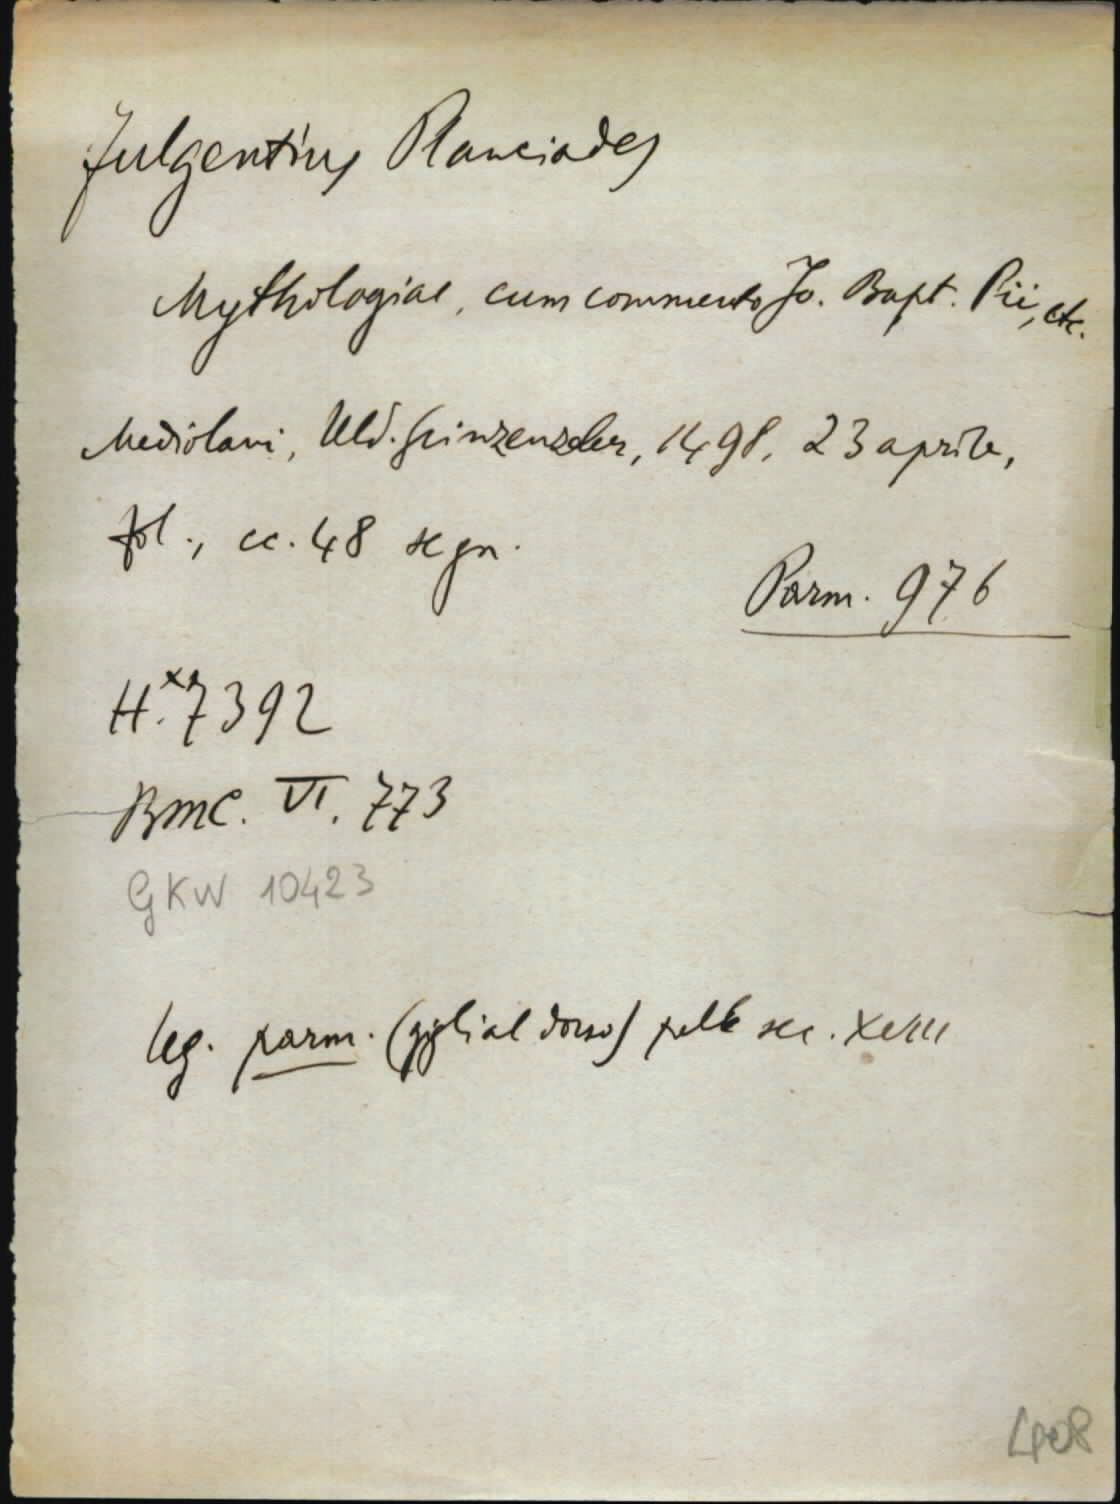 Fulgentius Planciades
Mythologiae, cum commento Jo. Bapt. Pii, etc.
Mediolani, Uld. Scinzenzeler, 1498, 23 aprile,
fol., cc. 48 segn.
Parm. 976
H.x 7392
BMC. VI. 773
GKW 10423
leg. parm. (gigli al dorso) pelle sec. XVIII
408